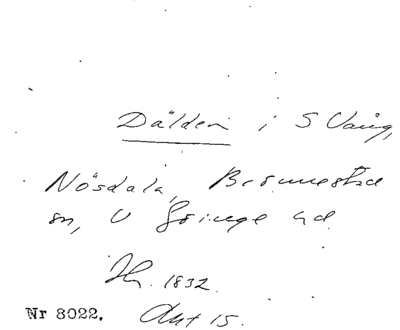 Dälden i S Vång,
Nösdala, Brönnestad
sn, V Göinge hd
Hr. 1832.
Nr 8022. Akt 15.